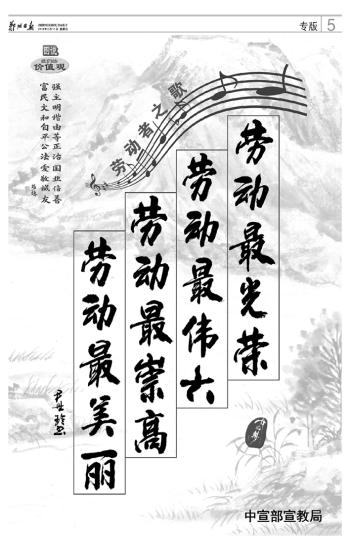 郑州日报
专版 5
图说
我们的
价值观
富强
民主
文明
和谐
自由
平等
公正
法治
爱国
敬业
诚信
友善
劳动者之歌
劳动最光荣
劳动最伟大
劳动最崇高
劳动最美丽
中宣部宣教局